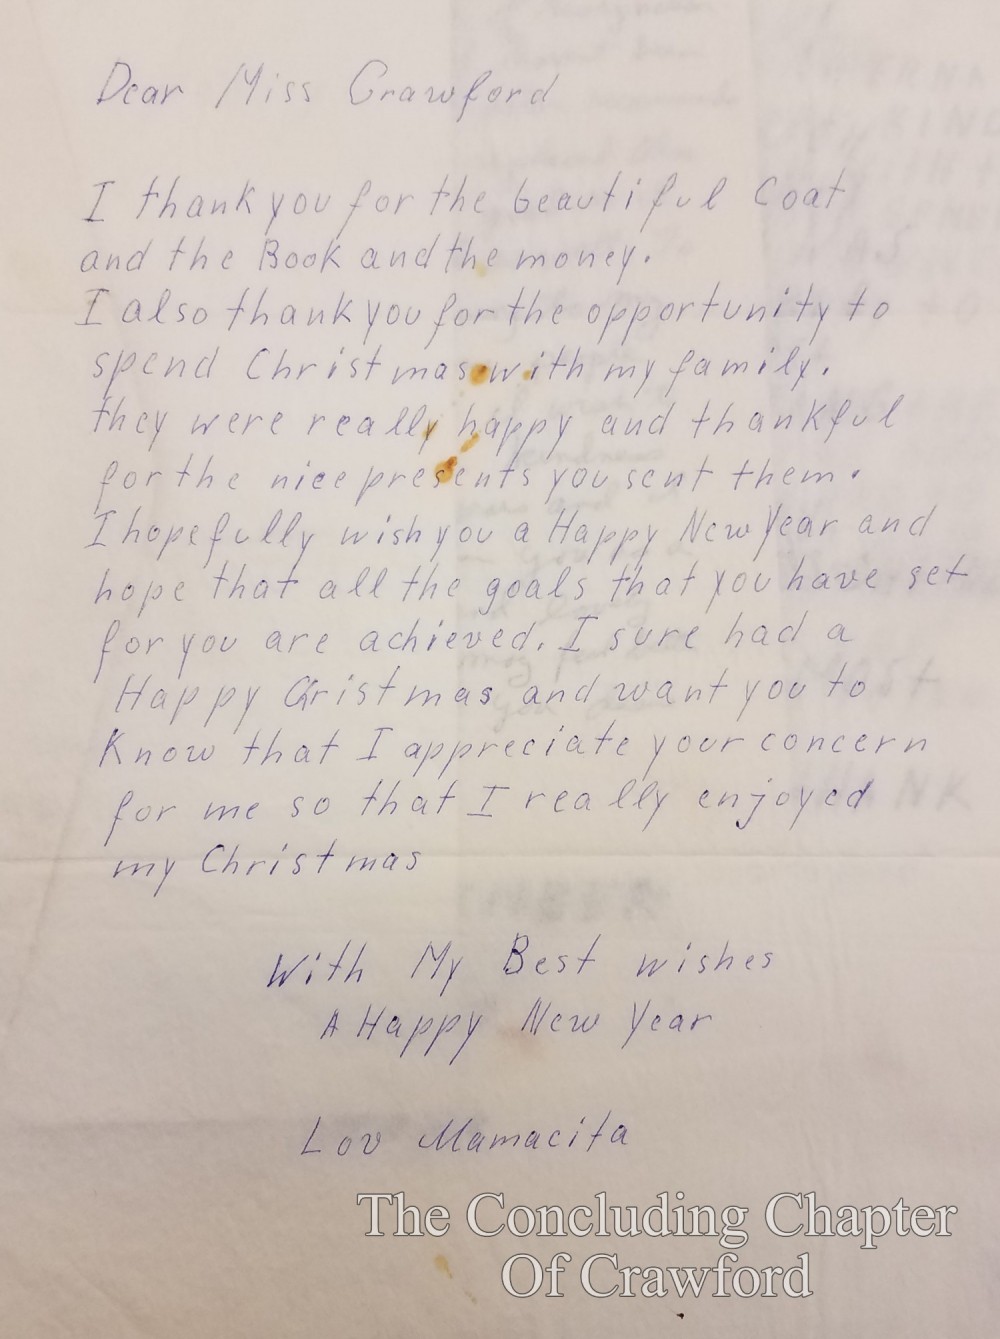 Dear Miss Crawford
I thank you for the beautiful Coat
and the Book and the money.
I also thank you for the opportunity to
spend Christmas with my family.
they were really happy and thankful
for the nice presents you sent them.
I hopefully wish you a Happy New Year and
hope that all the goals that you have set
for you are achieved. I sure had a
Happy Christmas and want you to
Know that I appreciate your concern
for me so that I really enjoyed
my Christmas
With My Best wishes
A Happy New Year
Lov Mamacita
The Concluding Chapter
Of Crawford